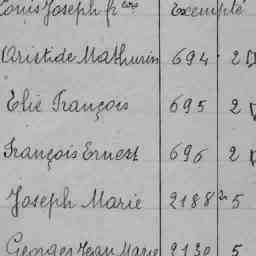 Louis Joseph frçois exempté
Aristide Mathurin 694 2
Elie François 695 2
François Ernest 696 2
Joseph Marie 2188 5
Georges Jean Marie 2130 5